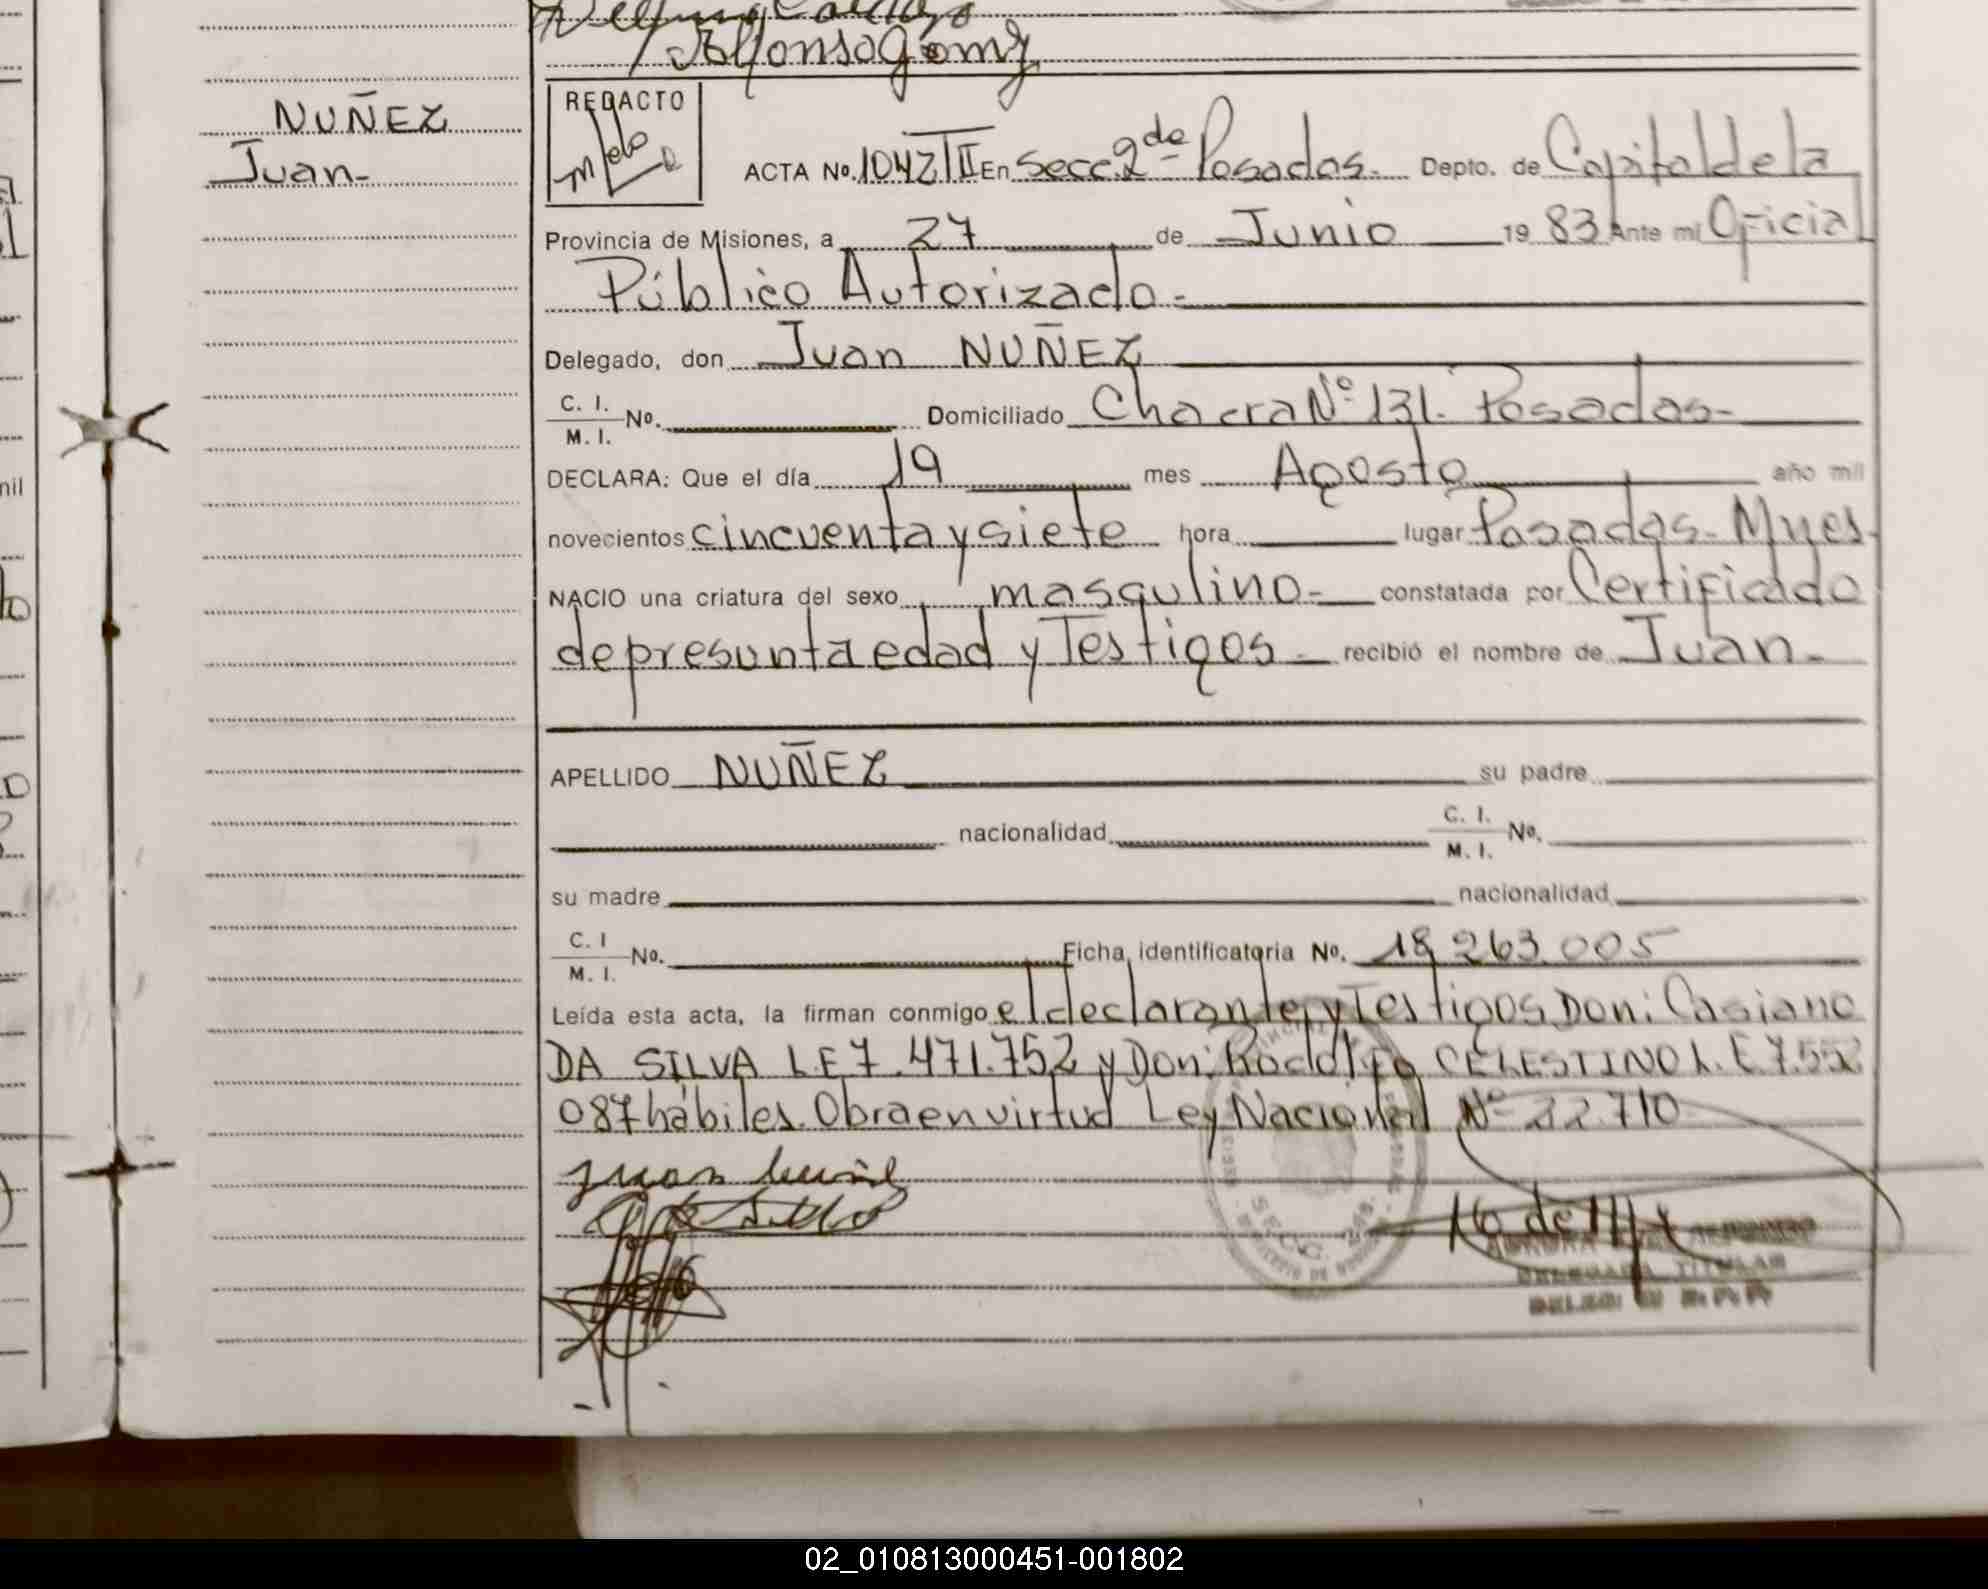 Alfonso Gomez
NUÑEZ
Juan-
REDACTO
ACTA No. 1042/TII En Secc. 2da Posadas. Depto. de Capital de la
Provincia de Misiones, a 27 de Junio 19 83 Ante mi Oficial
Público Autorizado-
Delegado, don Juan NUÑEZ
C. I.
M. I. No. Domiciliado Chacra Nº 131. Posadas-
DECLARA: Que el día 19 mes Agosto año mil
novecientos cincuenta y siete hora lugar Posadas- Mnes-
NACIO una criatura del sexo masculino- constatada por Certificado
de presunta edad y Testigos- recibió el nombre de Juan-
APELLIDO NUÑEZ su padre
nacionalidad C. I.
M. I. No.
su madre nacionalidad
C. I
M. I. No. Ficha identificatoria No. 18 263.005
Leída esta acta, la firman conmigo el declarante y Testigos Don: Casiano
DA SILVA L.E 7.471.752 y Don: Rodolfo CELESTINO L.E 7.552
087 hábiles. Obra en virtud Ley Nacional Nº 22.710
SECC. 2da.
DELEGADA TITULAR
02_010813000451-001802